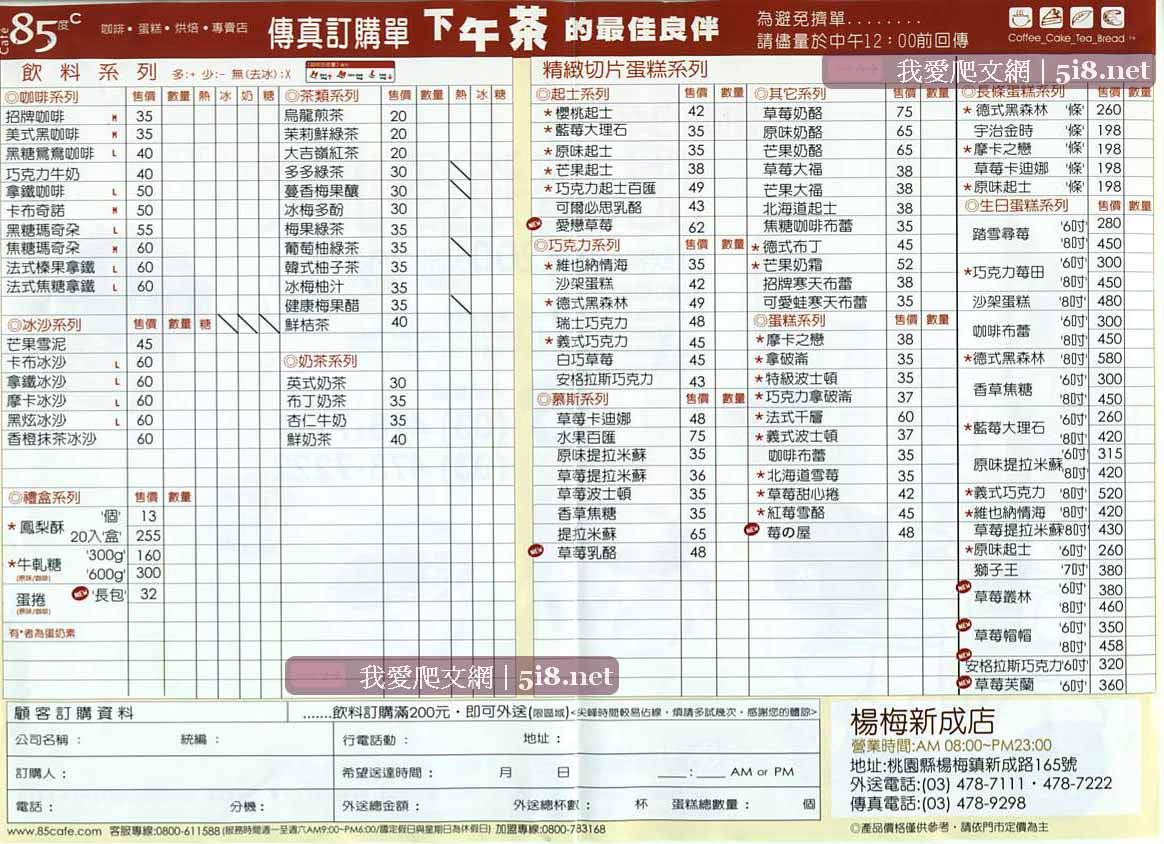 Cafe 85度C
咖啡・蛋糕・烘焙・專賣店
傳真訂購單 下午茶 的最佳良伴
為避免擠單........
請儘量於中午12：00前回傳
Coffee_Cake_Tea_Bread
我愛爬文網｜5i8.net
飲料系列 多:+ 少:- 無(去冰):X
◎咖啡系列 售價 數量 熱 冰 奶 糖
招牌咖啡 M 35
美式黑咖啡 M 35
黑糖鴛鴦咖啡 L 40
巧克力牛奶 40
拿鐵咖啡 L 50
卡布奇諾 M 50
黑糖瑪奇朵 L 55
焦糖瑪奇朵 M 60
法式榛果拿鐵 L 60
法式焦糖拿鐵 L 60
◎冰沙系列 售價 數量 糖
芒果雪泥 45
卡布冰沙 L 60
拿鐵冰沙 L 60
摩卡冰沙 L 60
黑炫冰沙 L 60
香橙抹茶冰沙 60
◎禮盒系列 售價 數量
*鳳梨酥 '個' 13
20入'盒' 255
*牛軋糖 '300g' 160
(原味/咖啡) '600g' 300
蛋捲 NEW '長包' 32
(原味/咖啡)
有*者為蛋奶素
◎茶類系列 售價 數量 熱 冰 糖
烏龍煎茶 20
茉莉鮮綠茶 20
大吉嶺紅茶 20
多多綠茶 30
蔓香梅果釀 30
冰梅多酚 30
梅果綠茶 35
葡萄柚綠茶 35
韓式柚子茶 35
冰梅柚汁 35
健康梅果醋 35
鮮桔茶 40
◎奶茶系列
英式奶茶 30
布丁奶茶 35
杏仁牛奶 35
鮮奶茶 40
精緻切片蛋糕系列
◎起士系列 售價 數量
*櫻桃起士 42
*藍莓大理石 35
*原味起士 35
*芒果起士 38
*巧克力起士百匯 49
可爾必思乳酪 43
NEW 愛戀草莓 62
◎巧克力系列 售價 數量
*維也納情海 35
沙架蛋糕 42
*德式黑森林 49
瑞士巧克力 48
*義式巧克力 45
白巧草莓 45
安格拉斯巧克力 43
◎慕斯系列 售價 數量
草莓卡迪娜 48
水果百匯 75
原味提拉米蘇 35
草莓提拉米蘇 36
草莓波士頓 35
香草焦糖 35
提拉米蘇 65
NEW 草莓乳酪 48
◎其它系列 售價 數量
草莓奶酪 75
原味奶酪 65
芒果奶酪 65
草莓大福 38
芒果大福 38
北海道起士 38
焦糖咖啡布蕾 35
*德式布丁 45
*芒果奶霜 52
招牌寒天布蕾 38
可愛蛙寒天布蕾 35
◎蛋糕系列 售價 數量
*摩卡之戀 38
*拿破崙 35
*特級波士頓 35
*巧克力拿破崙 37
*法式千層 60
*義式波士頓 37
咖啡布蕾 35
*北海道雪莓 35
*草莓甜心捲 42
*紅莓雪酪 45
NEW 莓の屋 48
◎長條蛋糕系列 售價 數量
*德式黑森林 '條' 260
宇治金時 '條' 198
*摩卡之戀 '條' 198
草莓卡迪娜 '條' 198
*原味起士 '條' 198
◎生日蛋糕系列 售價 數量
踏雪尋莓 '6吋' 280
'8吋' 450
*巧克力莓田 '6吋' 300
'8吋' 450
沙架蛋糕 '8吋' 480
咖啡布蕾 '6吋' 300
'8吋' 450
*德式黑森林 '8吋' 580
香草焦糖 '6吋' 300
'8吋' 450
*藍莓大理石 '6吋' 260
'8吋' 420
原味提拉米蘇 '6吋' 315
'8吋' 420
*義式巧克力 '8吋' 520
*維也納情海 '8吋' 420
草莓提拉米蘇'8吋' 430
*原味起士 '6吋' 260
獅子王 '7吋' 380
NEW 草莓叢林 '6吋' 380
'8吋' 460
NEW 草莓帽帽 '6吋' 350
'8吋' 458
NEW 安格拉斯巧克力'6吋' 320
NEW 草莓芙蘭 '6吋' 360
我愛爬文網｜5i8.net
顧客訂購資料 .......飲料訂購滿200元・即可外送(限區域)<尖峰時間較易佔線・煩請多試幾次・感謝您的體諒>
公司名稱： 統編： 行電話動： 地址：
訂購人： 希望送達時間： 月 日 ___:___ AM or PM
電話： 分機： 外送總金額： 外送總杯數： 杯 蛋糕總數量： 個
www.85cafe.com 客服專線:0800-611588(服務時間週一至週六AM9:00~PM6:00/國定假日與星期日為休假日) 加盟專線:0800-783168
楊梅新成店
營業時間:AM 08:00~PM23:00
地址:桃園縣楊梅鎮新成路165號
外送電話:(03) 478-7111・478-7222
傳真電話:(03) 478-9298
◎產品價格僅供參考・請依門市定價為主